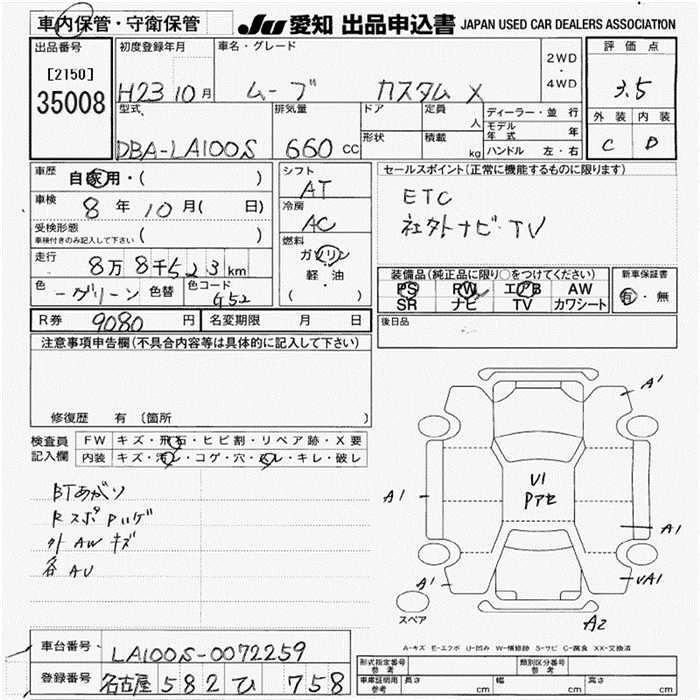 車内保管・守衛保管 JU 愛知 出品申込書 JAPAN USED CAR DEALERS ASSOCIATION
出品番号 [2150] 35008
初度登録年月 H23 10月
車名・グレード ムーブ カスタム X
2WD・4WD
評価点 3.5
外装 内装
C D
型式 DBA-LA100S
排気量 660 CC
ドア 定員 人
形状 積載 kg
ディーラー・並行
モデル年式 年
ハンドル 左・右
車歴 自家用・( )
車検 8年10月( 日)
受検形態 車検付きのみ記入して下さい ( )
走行 8万8千523km
色 グリーン 色替 色コード G52
シフト AT
冷房 AC
燃料 ガソリン 軽・油 ( )
セールスポイント(正常に機能するものに限ります)
ETC
社外ナビ・TV
装備品(純正品に限り○をつけてください)
PS PW エアB AW
SR ナビ TV カワシート
新車保証書 有・無
R券 9080円 名変期限 月 日
後日品
注意事項申告欄(不具合内容等は具体的に記入して下さい)
修復歴 有 〔箇所 〕
検査員記入欄
FW キズ・飛石・ヒビ割・リペア跡・X要
内装 キズ・汚れ・コゲ・穴・スレ・キレ・破レ
BTあがり
RスポPハゲ
外AWキズ
各AU
A'
A1
U1
Pアセ
A1
A'
UA1
A2
スペア
A-キズ E-エクボ U-凹み W-補修跡 S-サビ C-腐食 XX-交換済
車台番号 LA100S-0072259
登録番号 名古屋 582 ひ 758
形式指定番号 参考 類別区分番号 参考
車庫証明用 参考 長さ cm 幅 cm 高さ cm